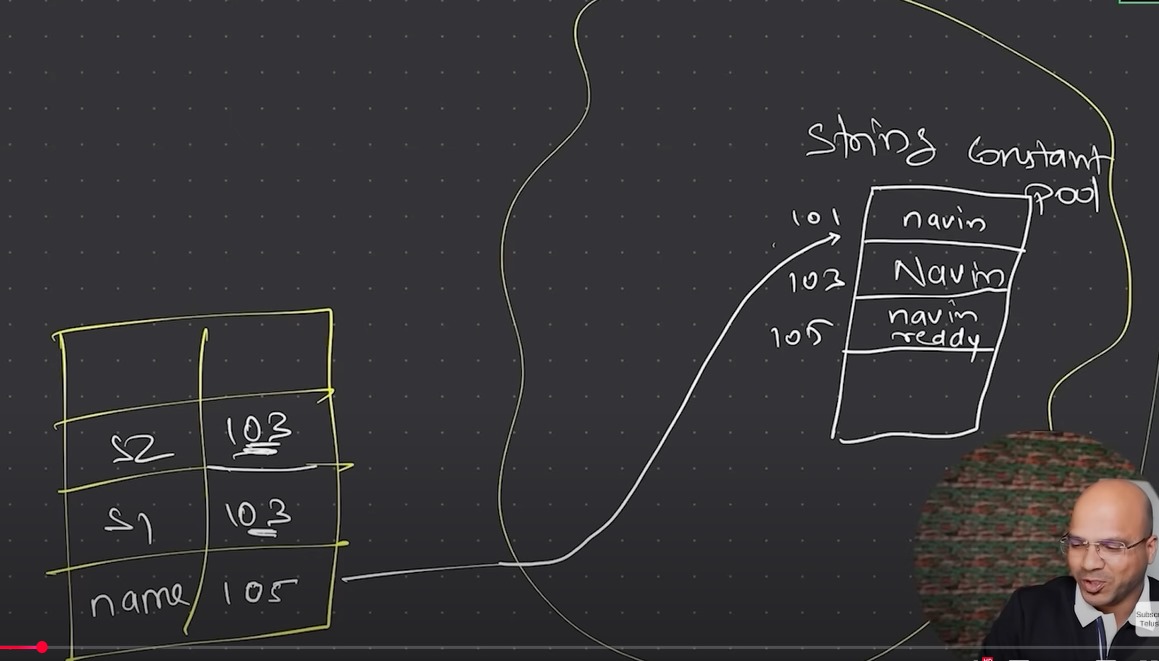 String Constant
pool
101 navin
103 Navin
105 navin
reddy
S2 103
S1 103
name 105
Telus